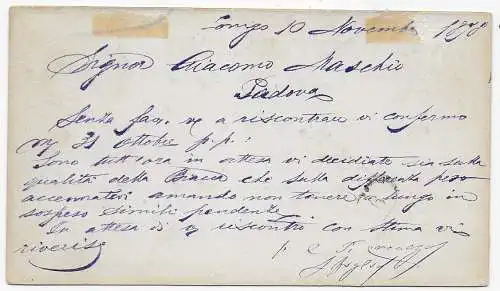 Lonigo 10 Novembre 1878
Signor Giacomo Maschio
Padova
Senza fav. va a riscontrare vi confermo
mia 31 ottobre p.p.
Sono tutt'ora in attesa vi decidiate sia sulla
qualità della Brace che sulla differenza peso
accennatavi amando non tenere a lungo in
sospeso simili pendenze
In attesa di riscontro con stima vi
riverisco